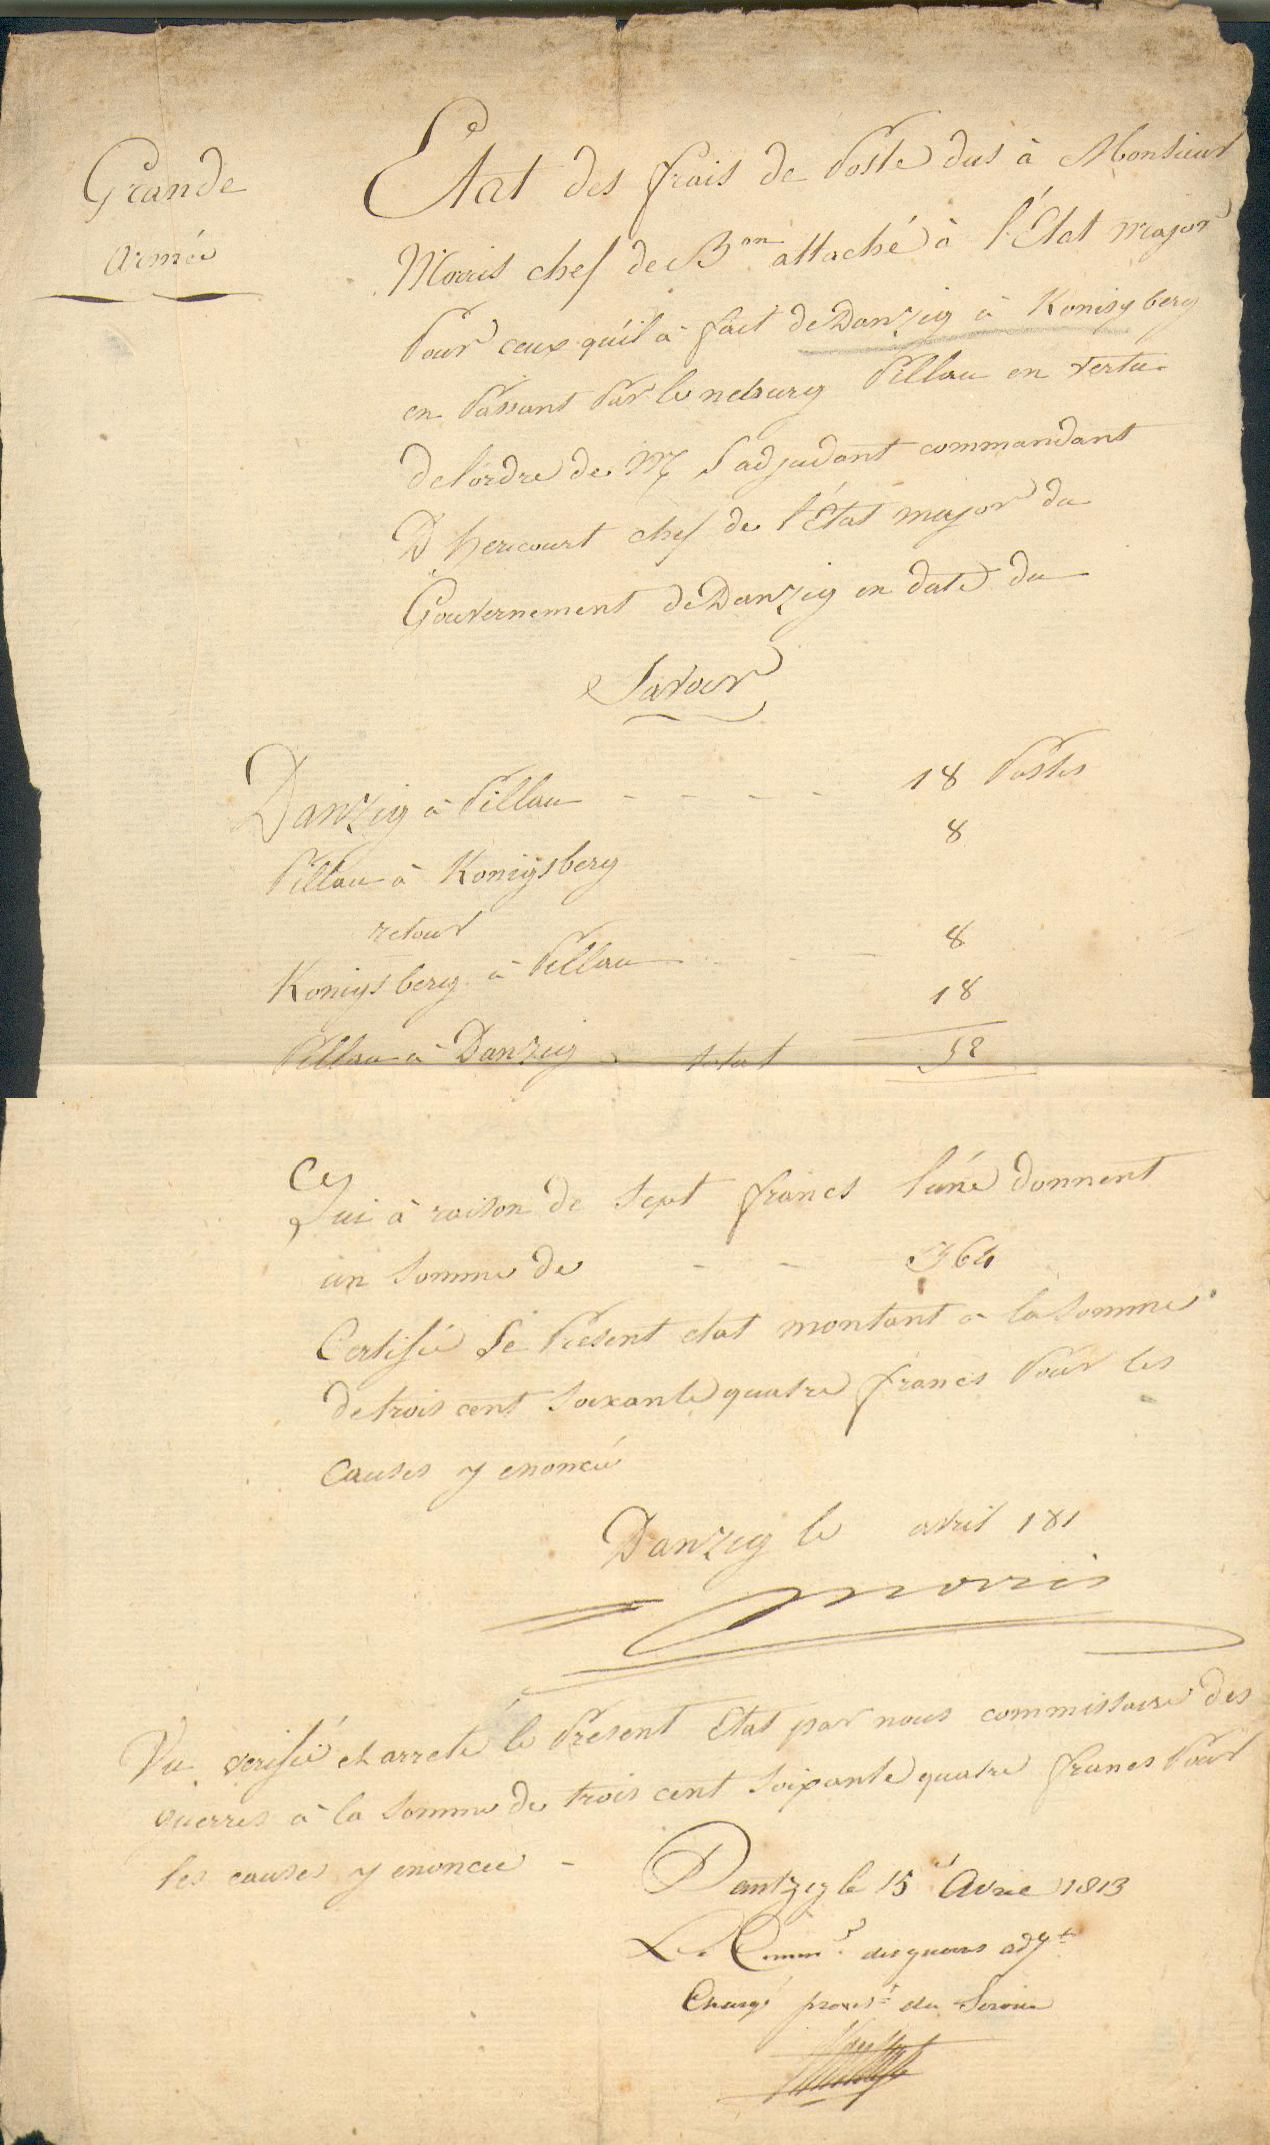 Grande
Armée
Etat des frais de Poste dus à Monsieur
Morris chef de Bon attaché à l'Etat major
Pour ceux qu'il à fait de Danzig à Konisgberg
en Passant Par Pillau en vertu
de l'ordre de Mr l'adjudant commandant
D'hericourt chef de l'Etat major du
Gouvernement de Danzig en date du
Savoir
Danzig à Pillau - - - - 18 Postes
Pillau à Konigsberg 8
retour
Konigsberg à Pillau - - - 8
Pillau à Danzig 18
total 52
Cy
Qui à raison de Sept francs l'une donnent
un Somme de - - 364
Certifié Le Présent etat montant à la Somme
de trois cent Soixante quatre francs Pour les
Causes y enoncé
Danzig le avril 181
Morris
Vu verifié et arreté le Présent Etat par nous commissaire des
guerres à la Somme de trois cent Soixante quatre francs Pour
les causes y enoncee -
Dantzig le 15 Avril 1813
Le Commre des guerres adjt
Chargé provisre du Service